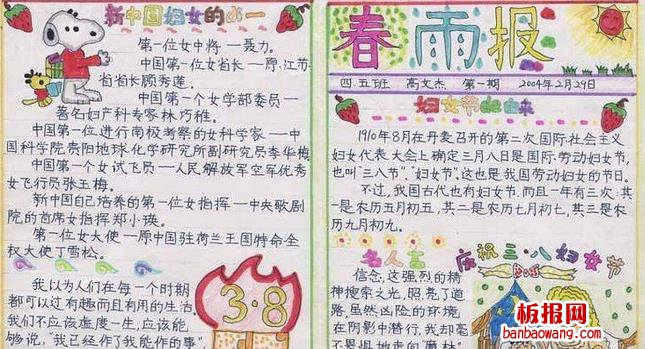 新中国妇女的第一
第一位女中将 — 聂力。
中国第一位女省长 — 原江苏
省省长顾秀莲。
中国第一个女学部委员 —
著名妇产科专家林巧稚。
中国第一位进行南极考察的女科学家 — 中
国科学院贵阳地球化学研究所副研究员李华梅
中国第一个女试飞员 — 人民解放军空军优秀
女飞行员张玉梅。
新中国自己培养的第一位女指挥 — 中央歌剧
院的首席女指挥郑小瑛。
第一位女大使 — 原中国驻荷兰王国特命全
权大使丁雪松。
我以为人们在每一个时期
都可以过有趣而且有用的生活
我们不应该虚度一生,应该能
够说,"我已经作了我能作的事"
3·8
春雨报
四.五班 高文杰 第一期 2004年2月29日
妇女节的由来
1910年8月在丹麦召开的第二次国际社会主义
妇女代表大会上确定三月八日是国际劳动妇女节,
也叫"三八节"."妇女节".这也是我国劳动妇女的节日。
不过,我国古代也有妇女节,而且一年有三次:其
一是农历五月初五,其二是农历七月初七,其三是农
历九月初九。
名人言
庆祝三·八妇女节
信念,这强烈的精
神搜索之光,照亮了道
路,虽然凶险的环境
在阴影中潜行,我却毫
不畏惧地走向"魔林"
板报网
banbaowang.com